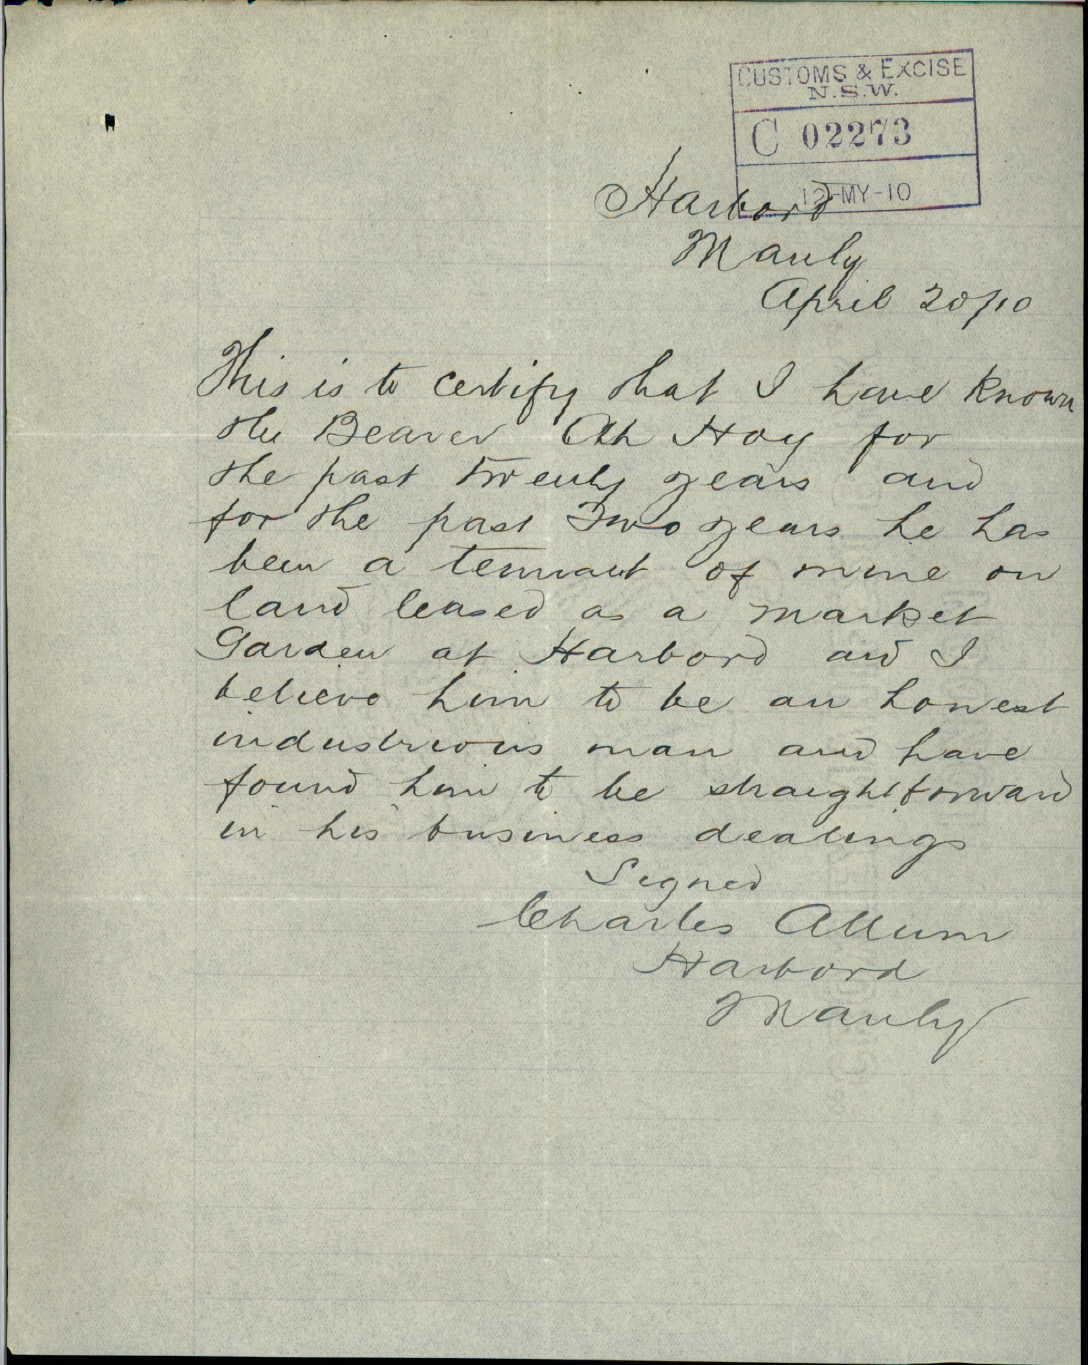 CUSTOMS & EXCISE
N.S.W.
C 02273
12-MY-10
Harbord
Manly
April 20/10
This is to certify that I have known
the Bearer Ah Hoy for
the past twenty years and
for the past Two years he has
been a tennant of mine on
land leased as a market
Garden at Harbord and I
believe him to be an honest
industrious man and have
found him to be straightforward
in his business dealings
Signed
Charles Allum
Harbord
Manly